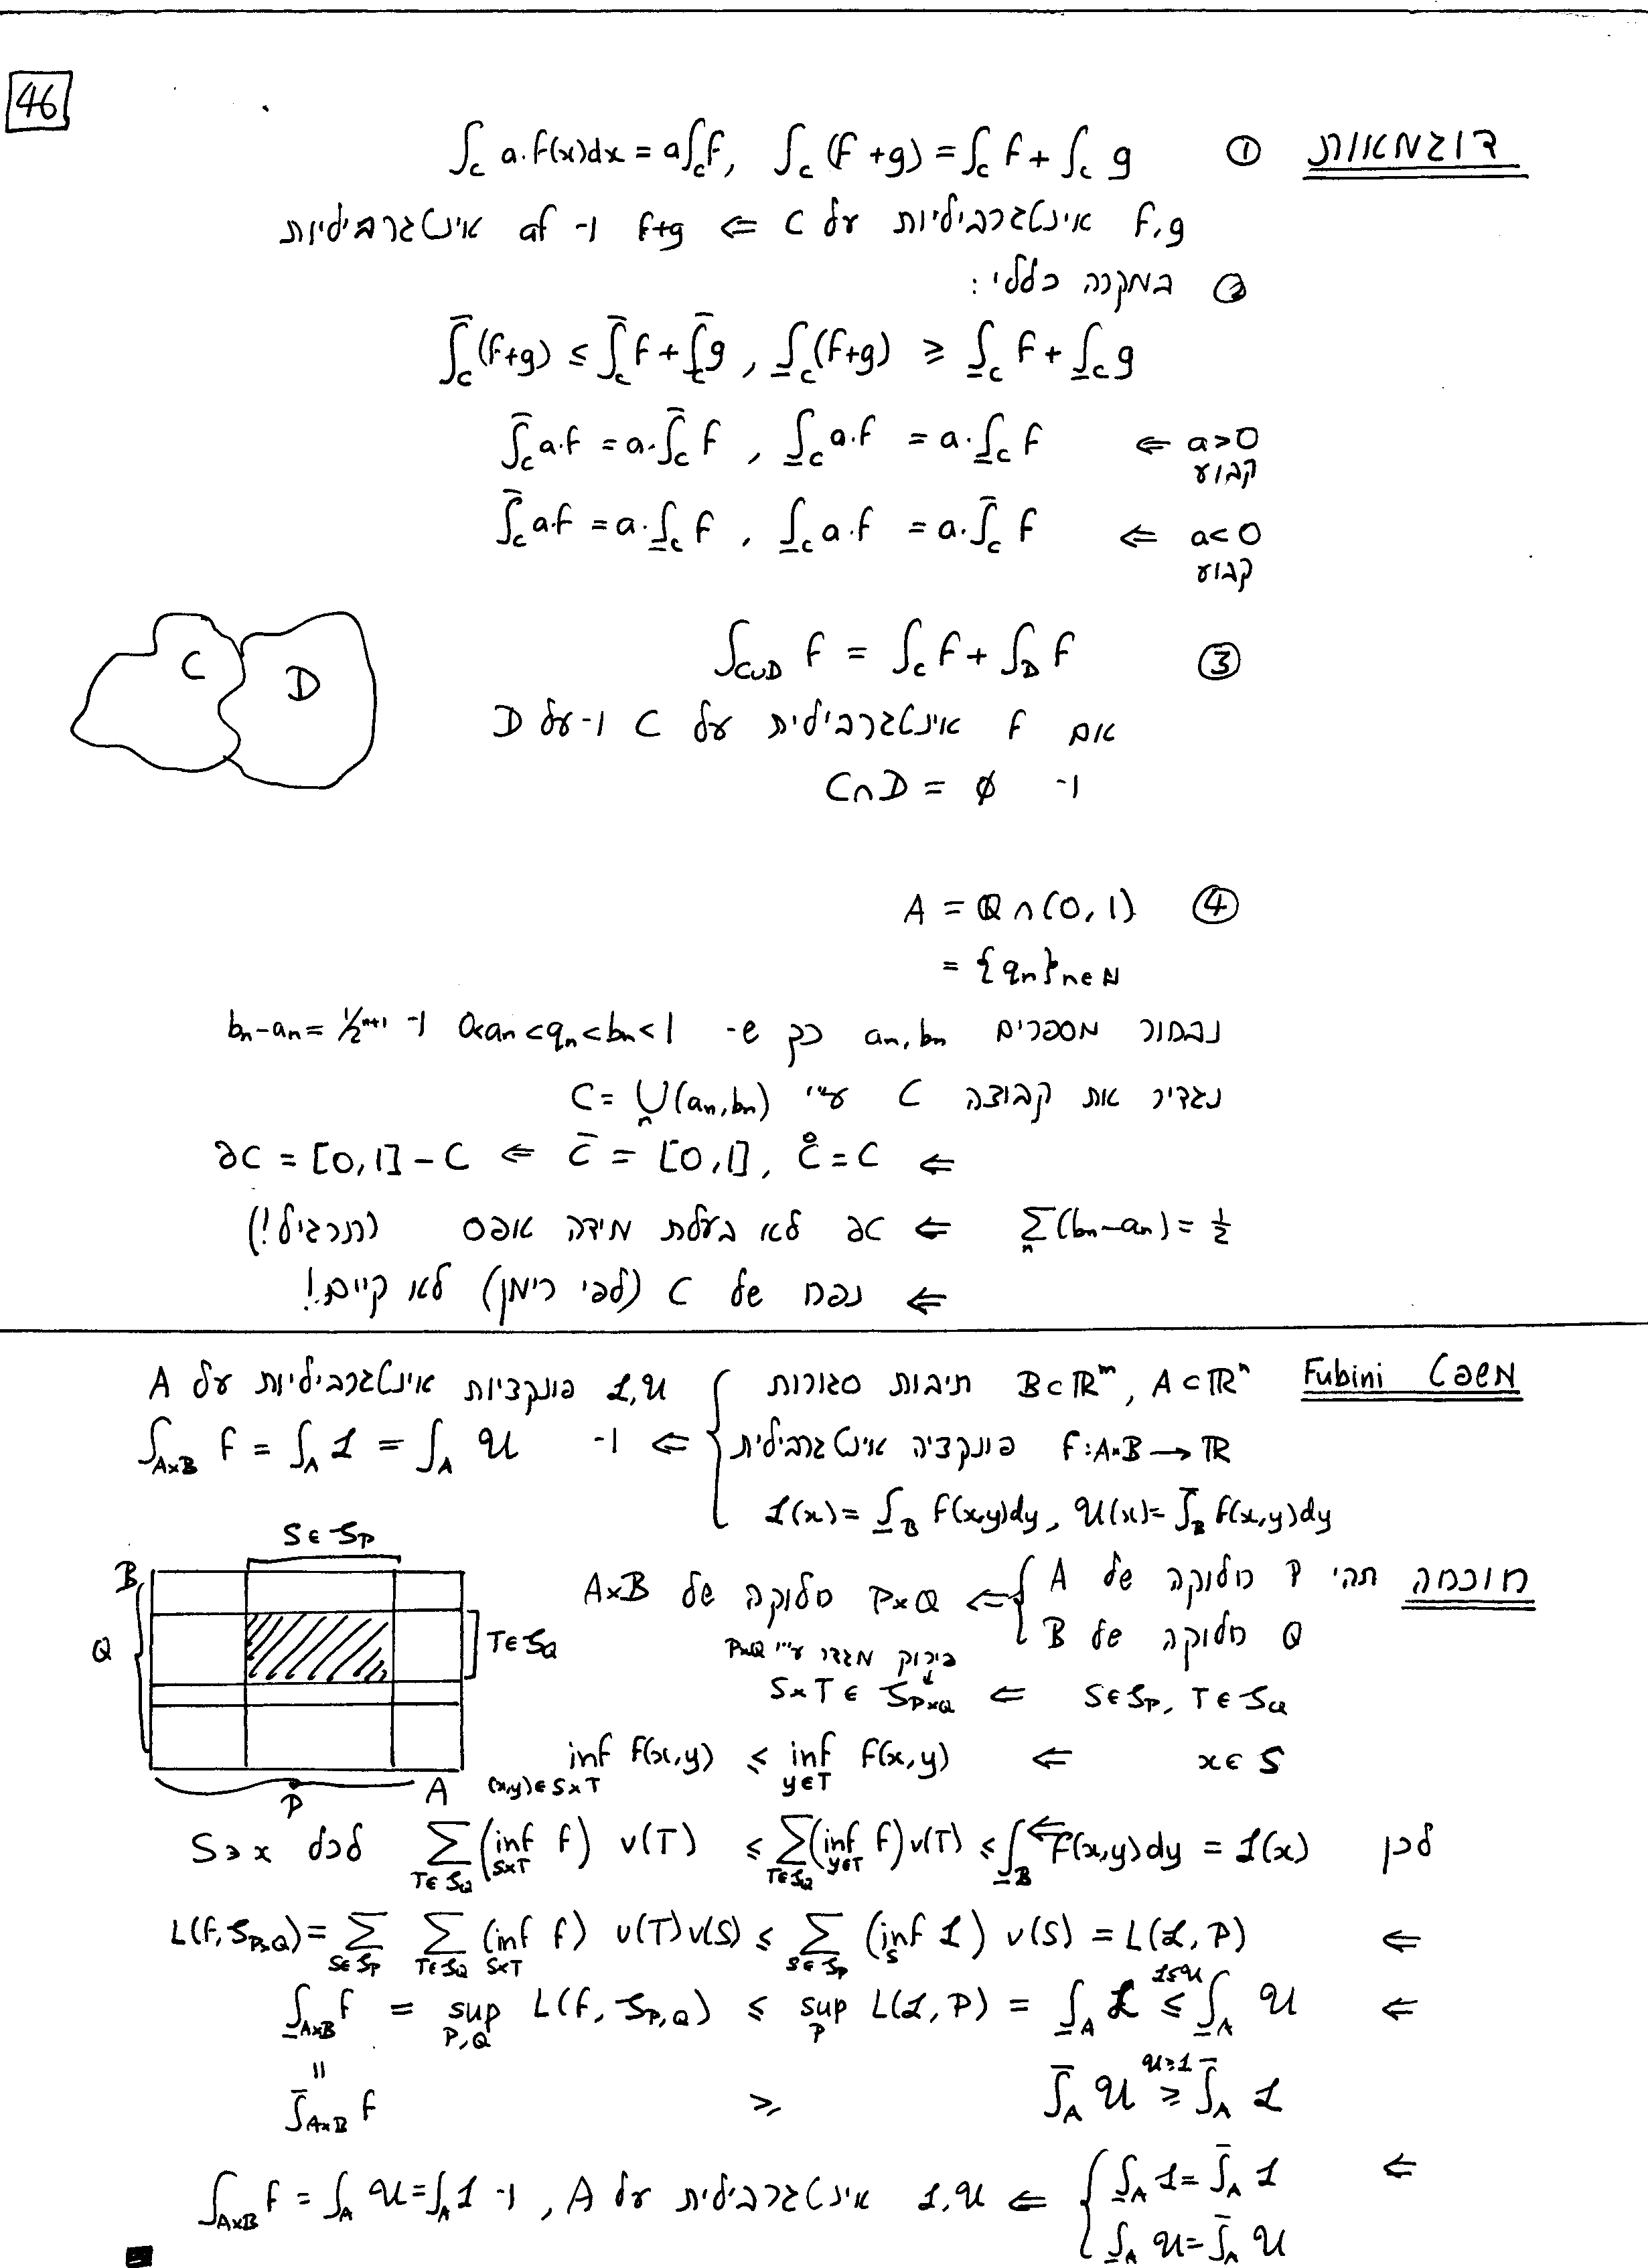 46
דוגמאות ① ∫_C a·f(x)dx = a∫_C f, ∫_C (f+g) = ∫_C f + ∫_C g
f,g אינטגרביליות על C ⇐ f+g ו- af אינטגרביליות
② במקרה כללי:
∫̄_C (f+g) ≤ ∫̄_C f + ∫̄_C g , ∫̲_C (f+g) ≥ ∫̲_C f + ∫̲_C g
a>0 קבוע ⇐ ∫̄_C a·f = a·∫̄_C f , ∫̲_C a·f = a·∫̲_C f
a<0 קבוע ⇐ ∫̄_C af = a·∫̲_C f , ∫̲_C a·f = a·∫̄_C f
③ ∫_{C∪D} f = ∫_C f + ∫_D f
C D
אם f אינטגרבילית על C ו-על D
ו- C∩D = ∅
④ A = ℚ∩(0,1)
= {q_n}_{n∈ℕ}
נבחור מספרים a_n, b_n כך ש- 0<a_n<q_n<b_n<1 ו- b_n-a_n = 1/2^{n+1}
נגדיר את קבוצה C ע"י C = ⋃_n (a_n,b_n)
⇐ C̄ = [0,1], C̊ = C ⇐ ∂C = [0,1] - C
∑_n (b_n-a_n) = 1/2 ⇐ ∂C לא בעלת מידה אפס (תרגיל!)
⇐ נפח של C (לפי רימן) לא קיים!
משפט Fubini { A⊂ℝⁿ, B⊂ℝᵐ תיבות סגורות
f: A×B → ℝ פונקציה אינטגרבילית
ℒ(x) = ∫̲_B f(x,y)dy, 𝒰(x) = ∫̄_B f(x,y)dy
⇐ ℒ,𝒰 פונקציות אינטגרביליות על A
ו- ∫_{A×B} f = ∫_A ℒ = ∫_A 𝒰
הוכחה תהי { P חלוקה של A
Q חלוקה של B
⇐ P×Q חלוקה של A×B
פירוק מגדר ע"י P×Q
S∈S_P, T∈S_Q ⇐ S×T ∈ S_{P×Q}
S∈S_P
B
Q
T∈S_Q
P
A
x∈S ⇐ inf_{(x,y)∈S×T} f(x,y) ≤ inf_{y∈T} f(x,y)
לכן ∑_{T∈S_Q} (inf_{S×T} f) v(T) ≤ ∑_{T∈S_Q} (inf_{y∈T} f) v(T) ≤ ∫̲_B f(x,y)dy = ℒ(x) לכל x∈S
⇐ L(f,S_{P×Q}) = ∑_{S∈S_P} ∑_{T∈S_Q} (inf_{S×T} f) v(T)v(S) ≤ ∑_{S∈S_P} (inf_S ℒ) v(S) = L(ℒ,P)
⇐ ∫̲_{A×B} f = sup_{P,Q} L(f,S_{P,Q}) ≤ sup_P L(ℒ,P) = ∫̲_A ℒ ≤^{ℒ≤𝒰} ∫̲_A 𝒰
=
∫̄_{A×B} f ≥ ∫̄_A 𝒰 ≥^{𝒰≥ℒ} ∫̄_A ℒ
⇐ { ∫̲_A ℒ = ∫̄_A ℒ
∫̲_A 𝒰 = ∫̄_A 𝒰
⇐ ℒ,𝒰 אינטגרבילית על A, ו- ∫_{A×B} f = ∫_A 𝒰 = ∫_A ℒ